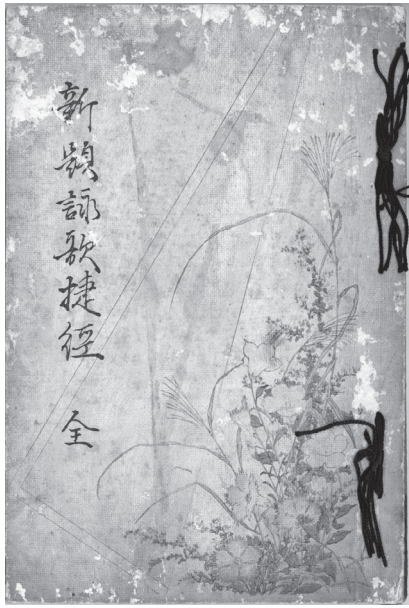 新題詠歌捷徑 全